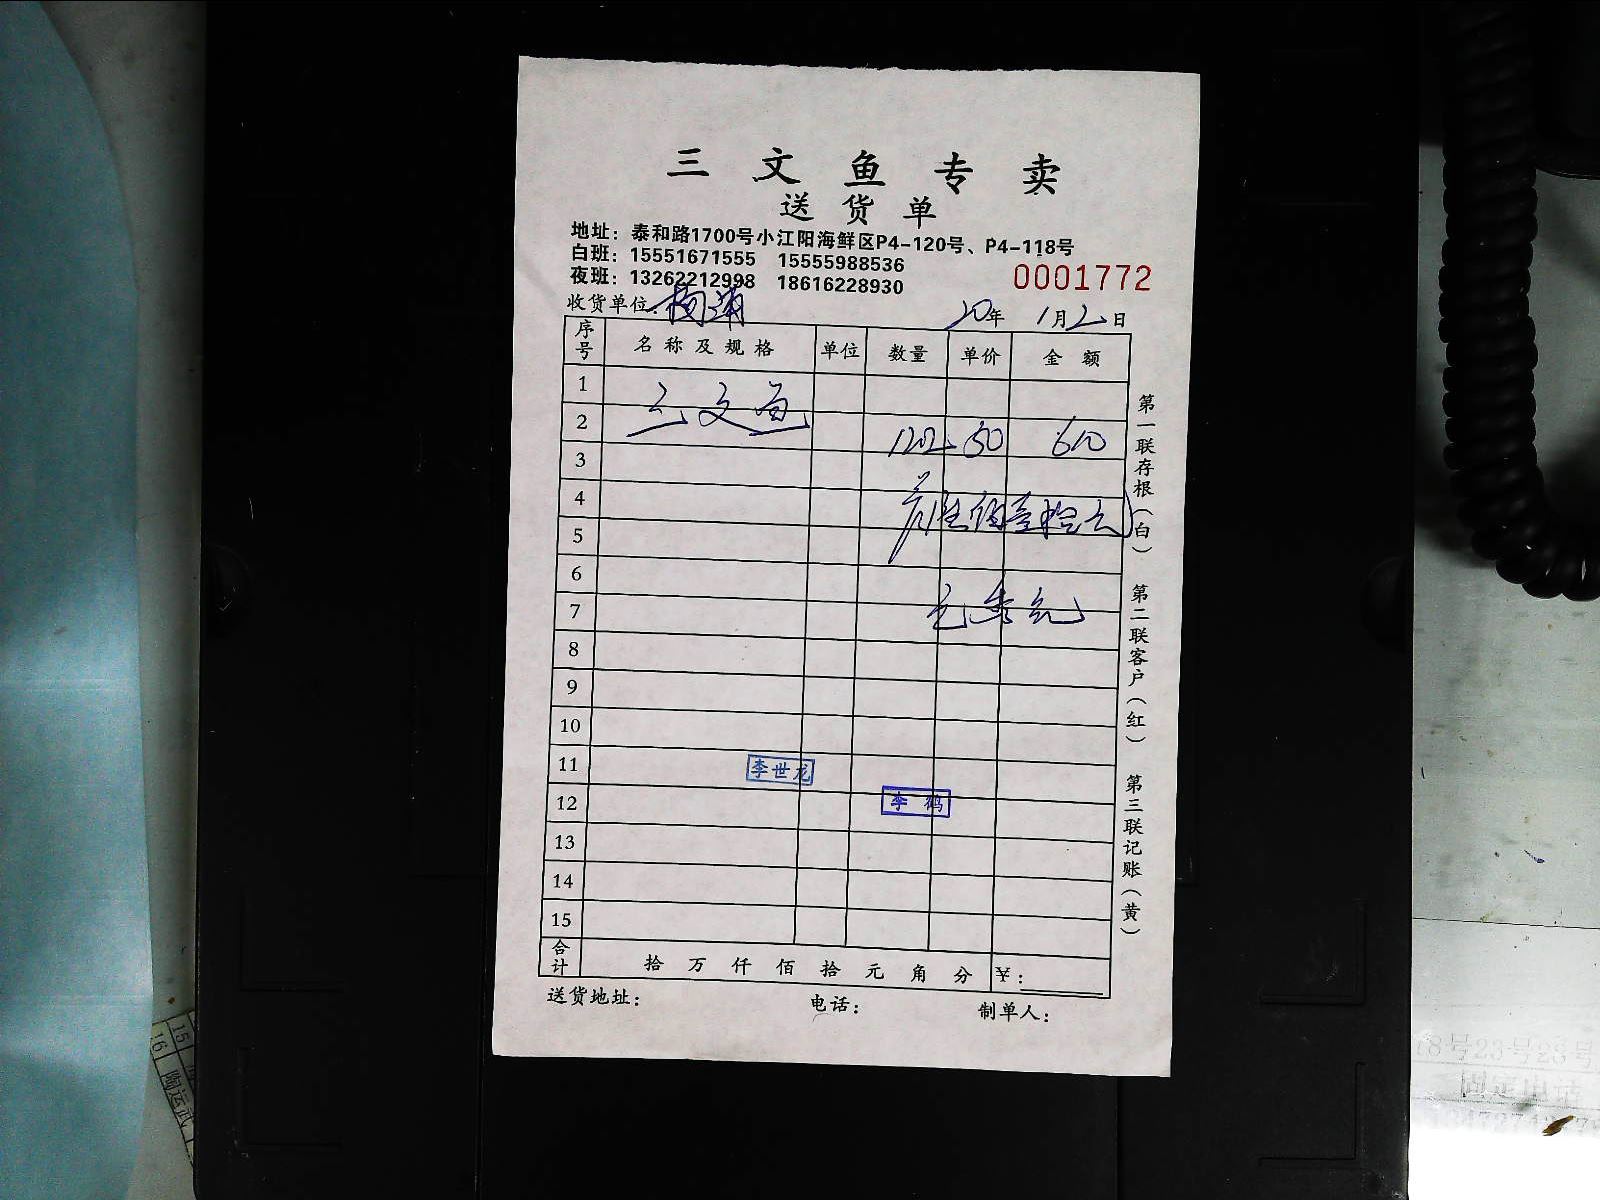 三文鱼专卖
送货单
地址：泰和路1700号小江阳海鲜区P4-120号、P4-118号
白班：15551671555 15555988536
夜班：13262212998 18616228930
0001772
收货单位：
20年 1月2日
序号 名称及规格 单位 数量 单价 金额
1
三文鱼
2 50 610
3
4
陆佰壹拾元
5
6
7
8
9
10
11 李世龙
12 李鹤
13
14
15
合计 拾 万 仟 佰 拾 元 角 分 ￥：
送货地址： 电话： 制单人：
第一联存根（白） 第二联客户（红） 第三联记账（黄）
15
16 陶运武
18号23号28号
固定电话